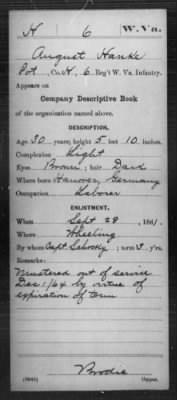 H 6 W. Va.
August Hanke
Pvt, Co. H, 6 Reg't W. Va. Infantry.
Appears on
Company Descriptive Book
of the organization named above.
DESCRIPTION.
Age 30 years; height 5 feet 10 inches.
Complexion Light
Eyes Brown; hair Dark
Where born Hanover, Germany
Occupation Laborer
ENLISTMENT.
When Sept 28, 1861.
Where Wheeling
By whom Capt. ; term 3 y'rs.
Remarks:
Mustered out of service
Dec 1/64 by virtue of
expiration of term
Brodie
Copyist.